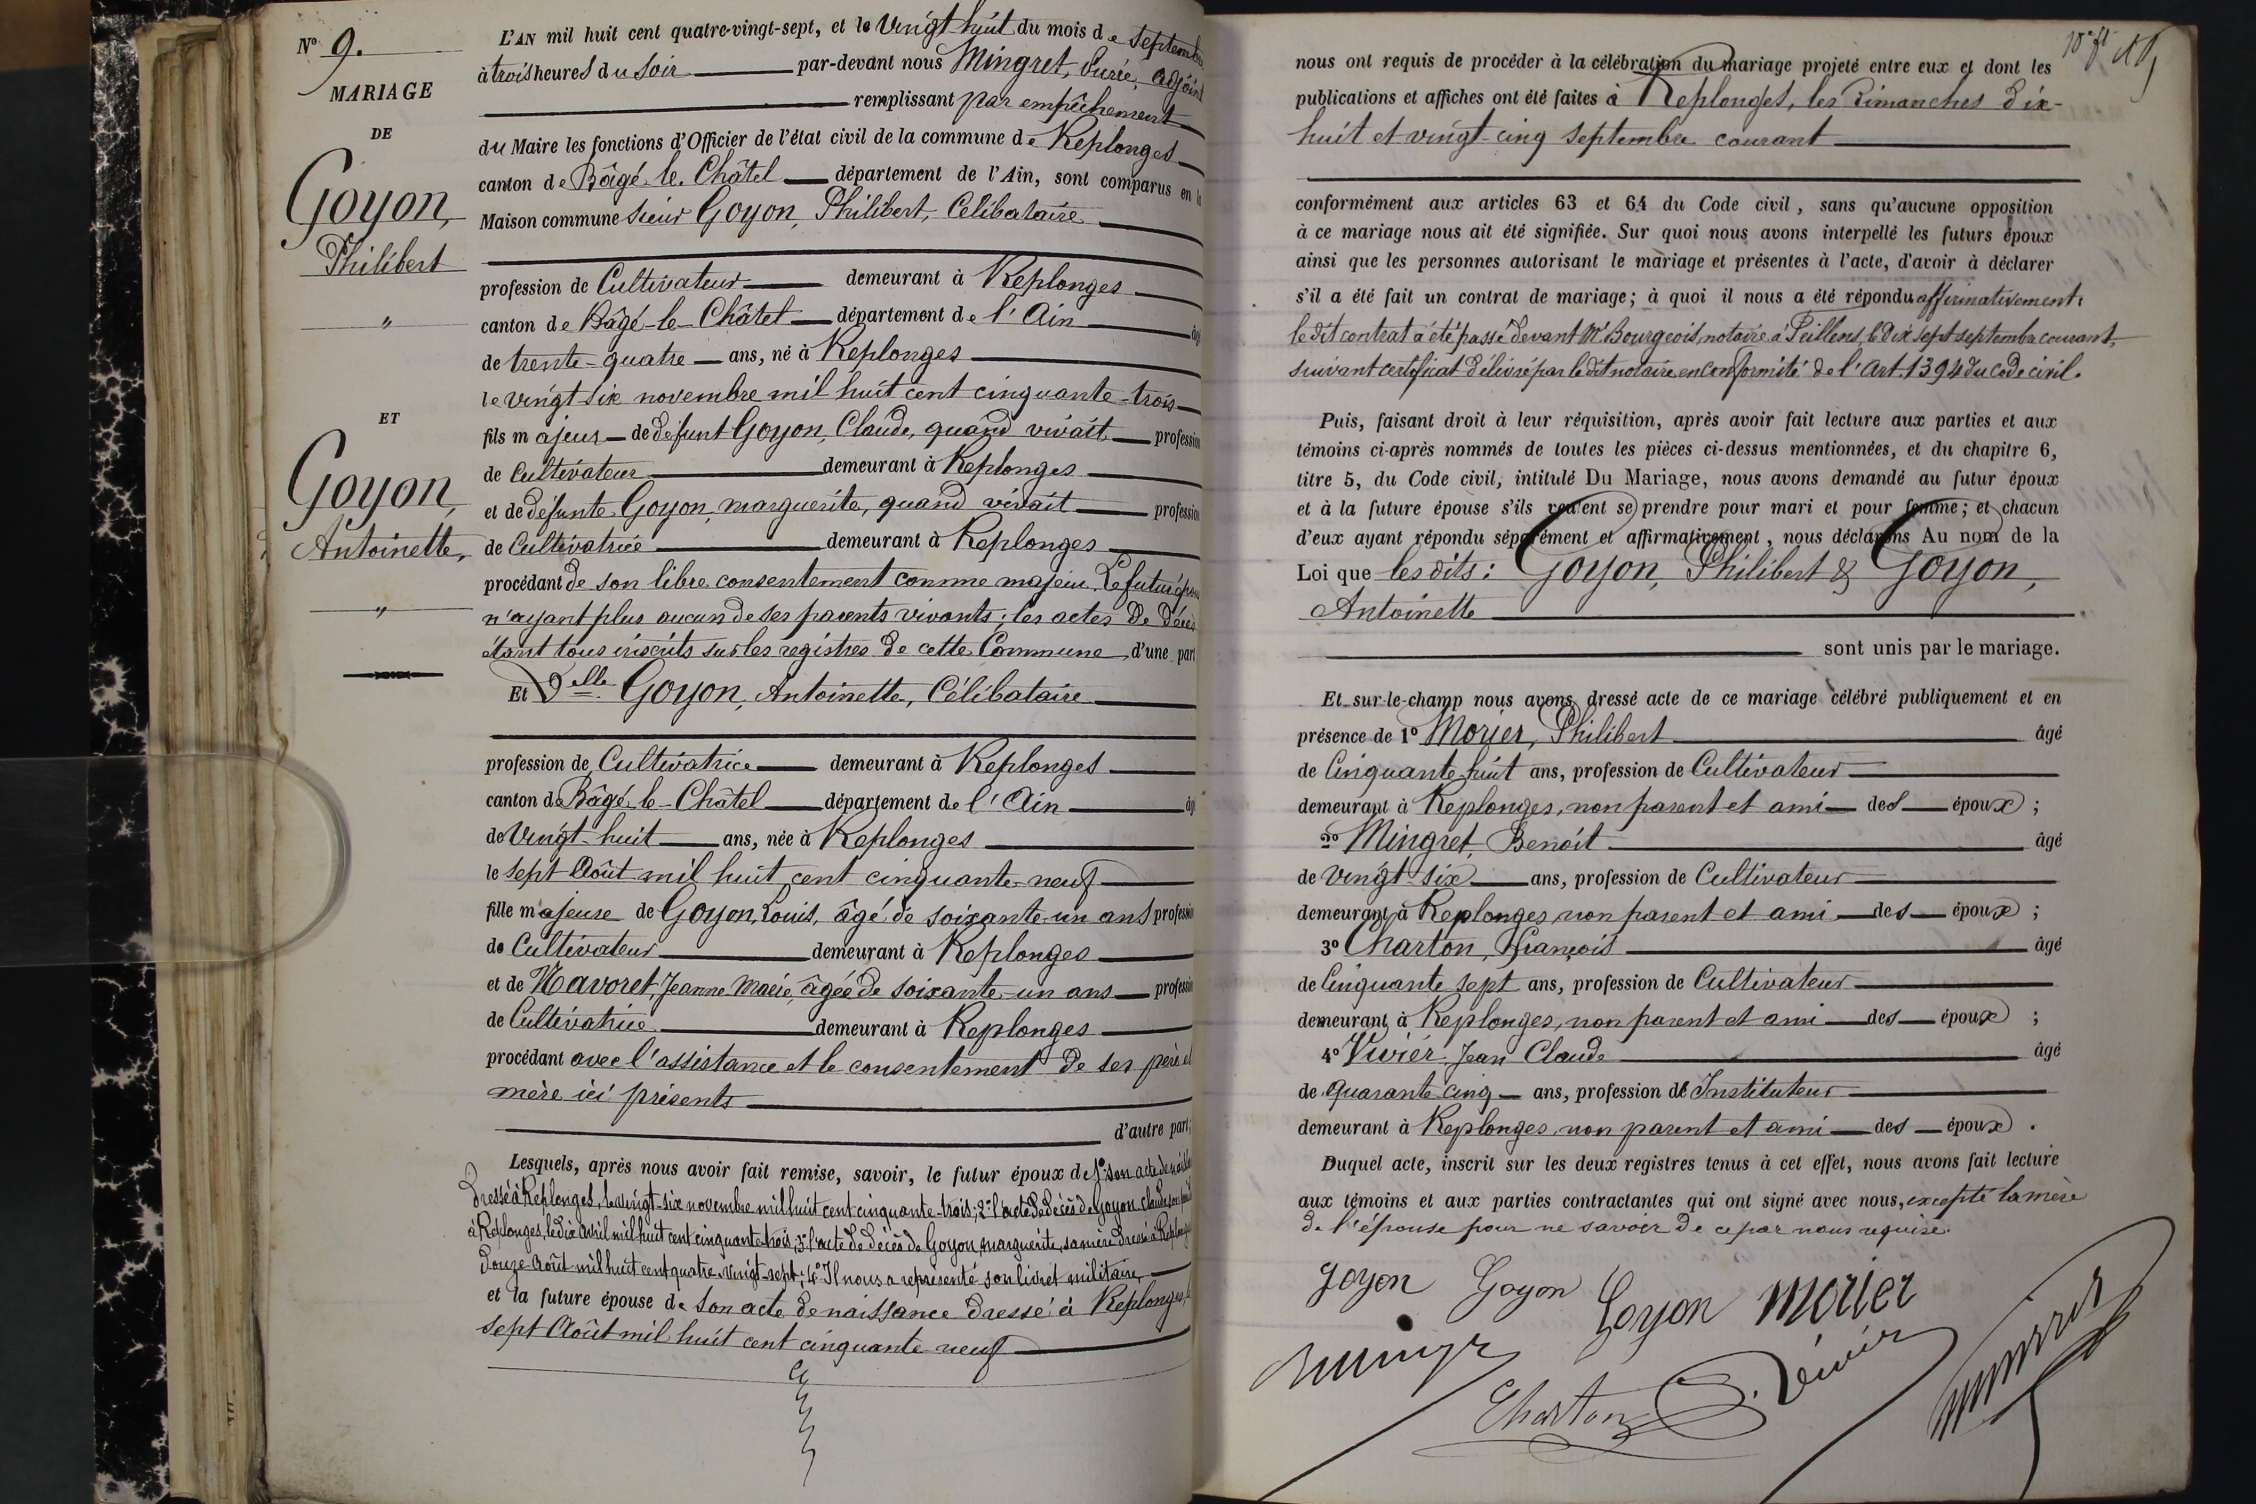 Nº 9.
MARIAGE
DE
Goyon,
Philibert
"
ET
Goyon,
Antoinette,
"
L'AN mil huit cent quatre-vingt-sept, et le Vingt huit du mois de septembre
à trois heures du soir par-devant nous Mingret, Curée, adjoint
remplissant par empêchement
du Maire les fonctions d'Officier de l'état civil de la commune de Replonges
canton de Bâgé-le-Châtel département de l'Ain, sont comparus en la
Maison commune sieur Goyon, Philibert, Célibataire
profession de Cultivateur demeurant à Replonges
canton de Bâgé-le-Châtel département de l'Ain âgé
de trente-quatre ans, né à Replonges
le vingt six novembre mil huit cent cinquante-trois
fils majeur de défunt Goyon, Claude, quand vivait profession
de Cultivateur demeurant à Replonges
et de défunte Goyon, marguerite, quand vivait profession
de Cultivatrice demeurant à Replonges
procédant de son libre consentement comme majeur. Le futur époux
n'ayant plus aucun de ses parents vivants; les actes de décès
étant tous inscrits sur les registres de cette Commune, d'une part
Et Delle Goyon, Antoinette, Célibataire
profession de Cultivatrice demeurant à Replonges
canton de Bâgé-le-Châtel département de l'Ain âgé
de Vingt-huit ans, née à Replonges
le sept Août mil huit cent cinquante-neuf
fille majeure de Goyon, Louis, âgé de soixante-un ans profession
de Cultivateur demeurant à Replonges
et de Navoret, Jeanne Marie, âgée de soixante-un ans profession
de Cultivatrice demeurant à Replonges
procédant avec l'assistance et le consentement de ses père et
mère ici présents
d'autre part;
Lesquels, après nous avoir fait remise, savoir, le futur époux de 1º son acte de naissance
dressé à Replonges, le vingt-six novembre mil huit cent cinquante-trois; 2º l'acte de décès de Goyon Claude, son
à Replonges, le dix avril mil huit cent cinquante trois, 3º l'acte de décès de Goyon, marguerite, sa mère dressé à Replonges
douze Août mil huit cent quatre-vingt-sept; 4º Il nous a représenté son livret militaire,
et la future épouse de son acte de naissance dressé à Replonges, le
sept Août mil huit cent cinquante-neuf
nous ont requis de procéder à la célébration du mariage projeté entre eux et dont les
publications et affiches ont été faites à Replonges, les dimanches dix-
huit et vingt-cinq septembre courant
conformément aux articles 63 et 64 du Code civil, sans qu'aucune opposition
à ce mariage nous ait été signifiée. Sur quoi nous avons interpellé les futurs époux
ainsi que les personnes autorisant le mariage et présentes à l'acte, d'avoir à déclarer
s'il a été fait un contrat de mariage; à quoi il nous a été répondu affirmativement:
le dit contrat a été passé devant Me Bourgeois, notaire à Feillens, le dix sept septembre courant,
suivant certificat délivré par le dit notaire en conformité de l'Art. 1394 du code civil.
Puis, faisant droit à leur réquisition, après avoir fait lecture aux parties et aux
témoins ci-après nommés de toutes les pièces ci-dessus mentionnées, et du chapitre 6,
titre 5, du Code civil, intitulé Du Mariage, nous avons demandé au futur époux
et à la future épouse s'ils veulent se prendre pour mari et pour femme; et chacun
d'eux ayant répondu séparément et affirmativement, nous déclarons Au nom de la
Loi que les dits: Goyon, Philibert & Goyon,
Antoinette
sont unis par le mariage.
Et sur-le-champ nous avons dressé acte de ce mariage célébré publiquement et en
présence de 1º Morier, Philibert âgé
de Cinquante huit ans, profession de Cultivateur
demeurant à Replonges, non parent et ami des époux;
2º Mingret, Benoît âgé
de vingt-six ans, profession de Cultivateur
demeurant à Replonges, non parent et ami des époux;
3º Charton, François âgé
de Cinquante sept ans, profession de Cultivateur
demeurant à Replonges, non parent et ami des époux;
4º Vivier Jean Claude âgé
de quarante cinq ans, profession de Instituteur
demeurant à Replonges, non parent et ami des époux.
Duquel acte, inscrit sur les deux registres tenus à cet effet, nous avons fait lecture
aux témoins et aux parties contractantes qui ont signé avec nous, excepté la mère
de l'épouse pour ne savoir de ce par nous requise.
goyon Goyon Goyon Morier
Charton Vivier